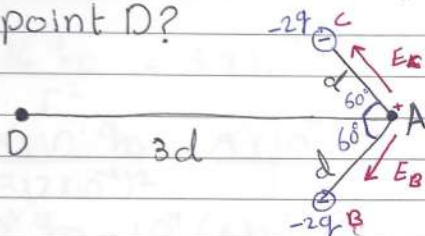 point D?
-2q C
E_C
d
60°
+ A
60°
D
3d
d
E_B
-2q B